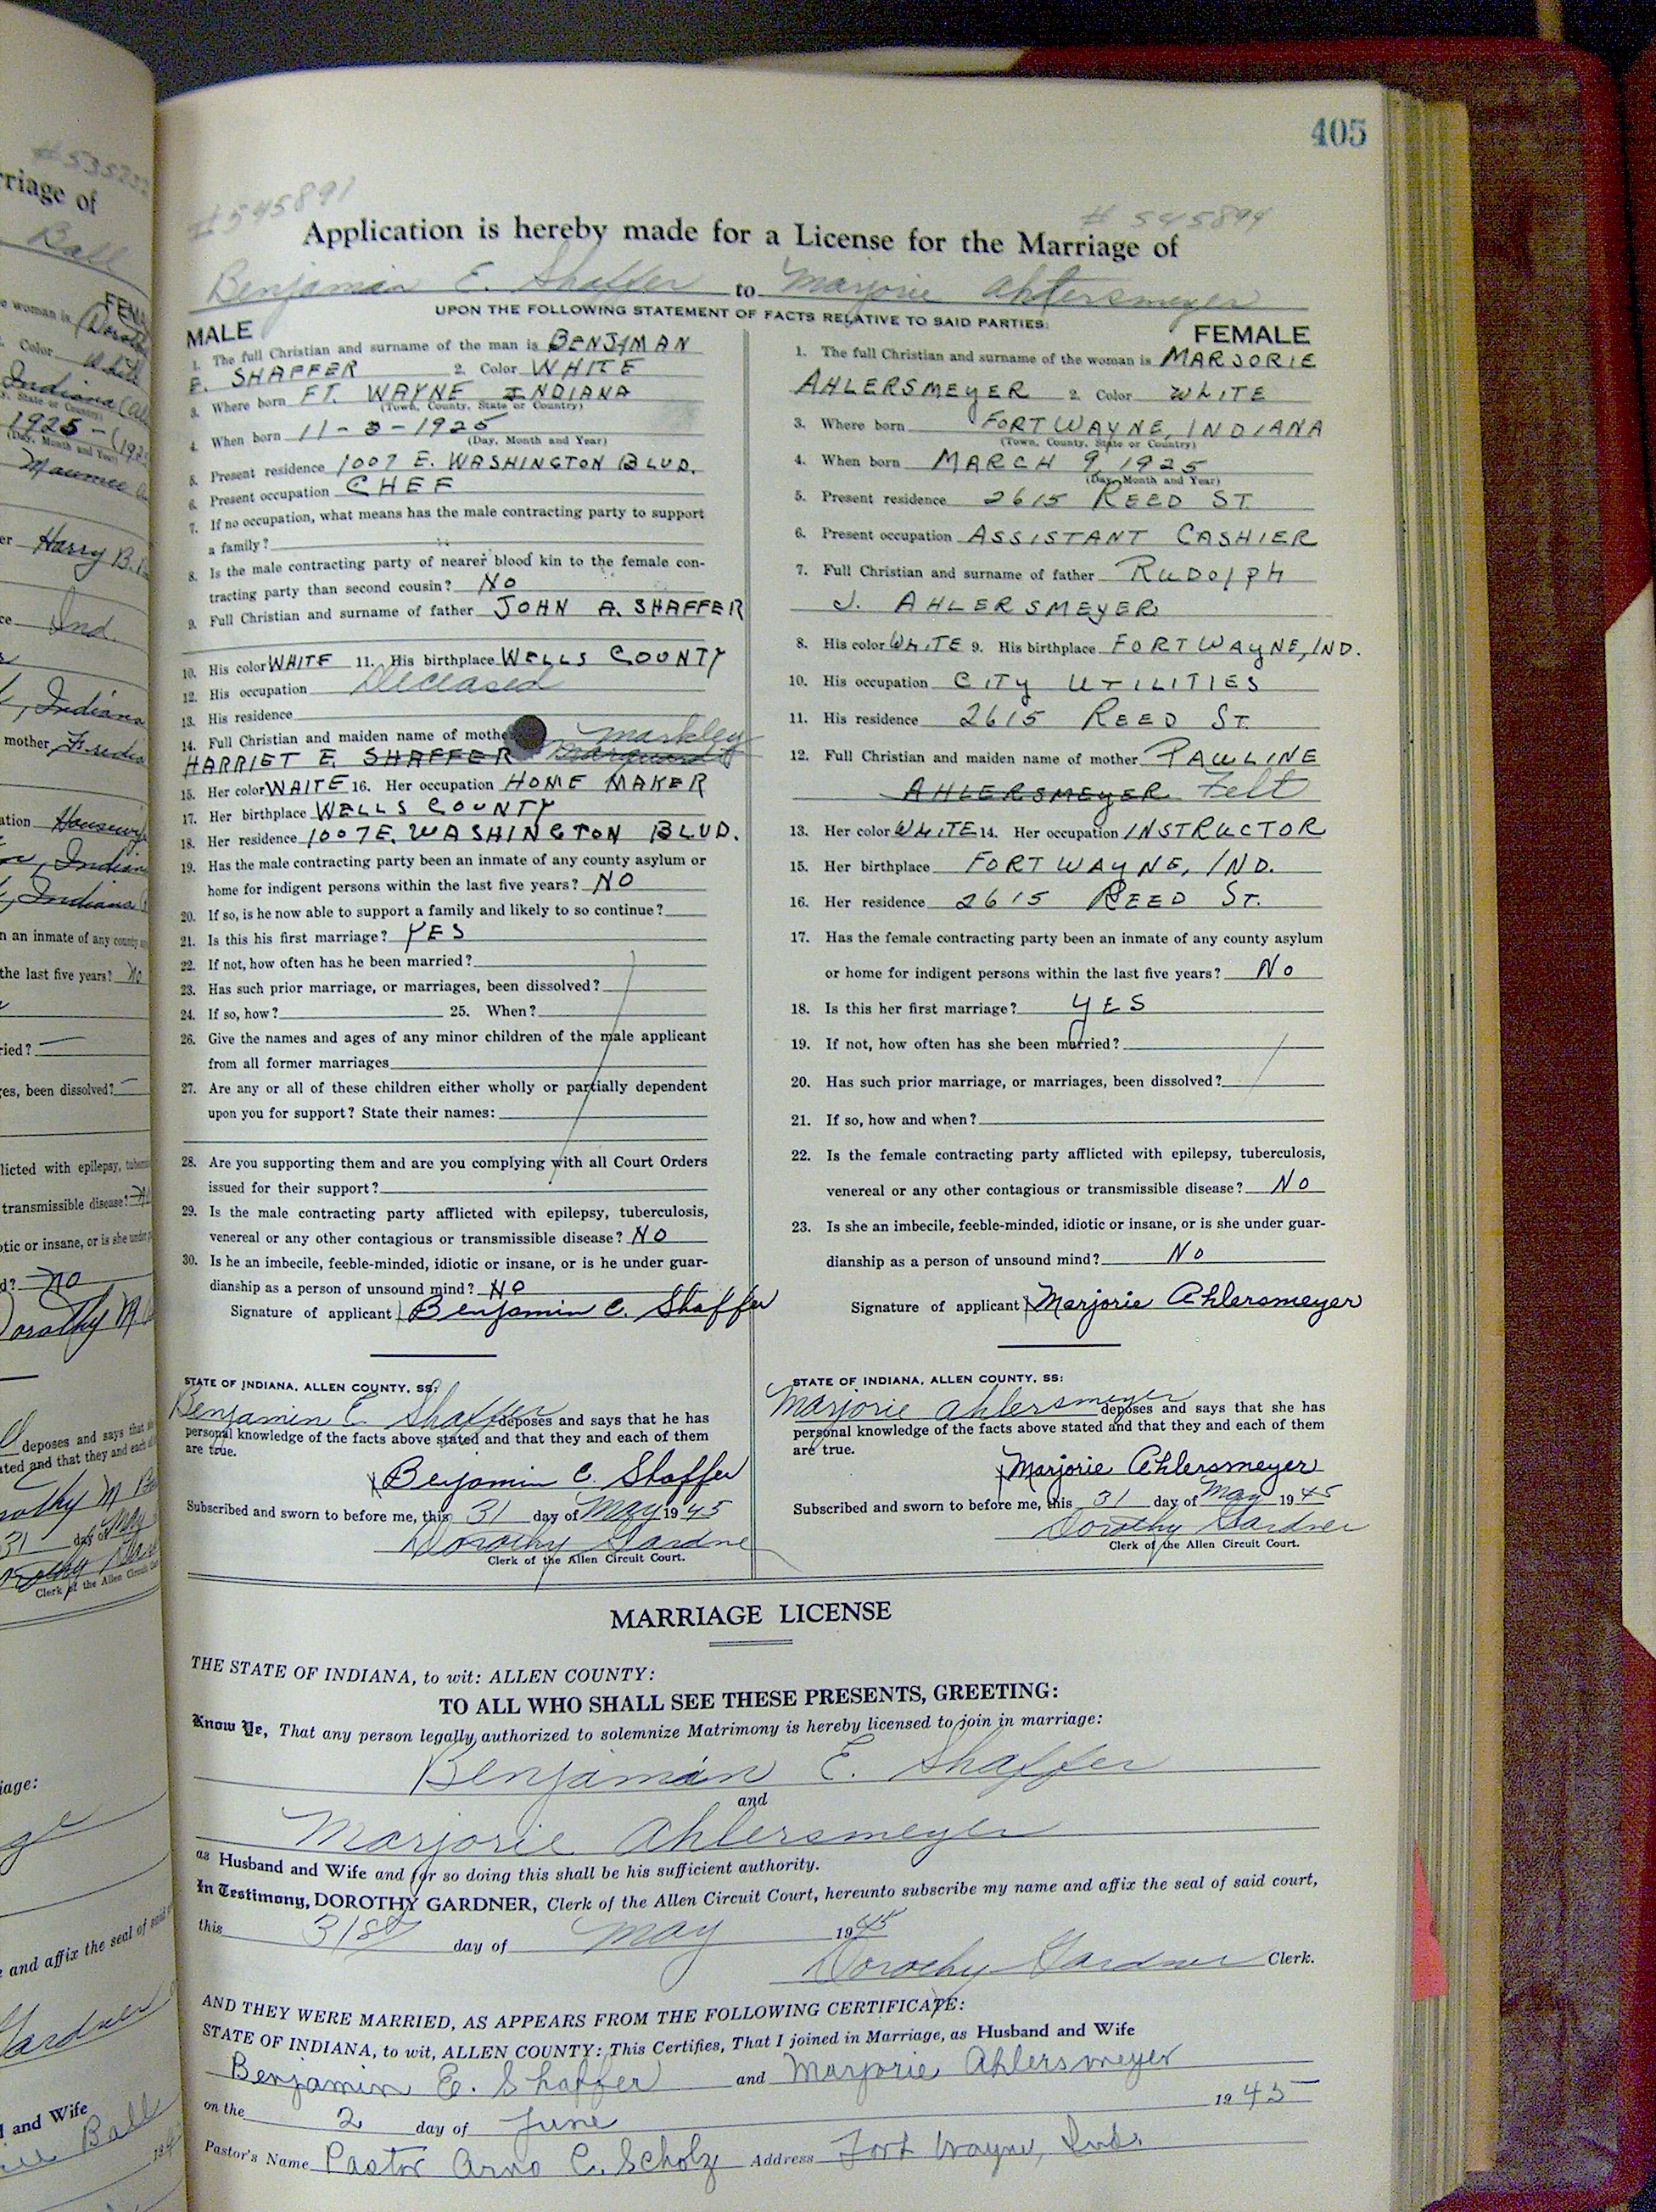 405
#545891 # 545894
Application is hereby made for a License for the Marriage of
Benjamin E. Shaffer to Marjorie Ahlersmeyer
UPON THE FOLLOWING STATEMENT OF FACTS RELATIVE TO SAID PARTIES:
MALE
1. The full Christian and surname of the man is BENJAMAN
E. SHAFFER 2. Color WHITE
3. Where born FT. WAYNE INDIANA
(Town, County, State or Country)
4. When born 11-3-1925
(Day, Month and Year)
5. Present residence 1007 E. WASHINGTON BLVD.
6. Present occupation CHEF
7. If no occupation, what means has the male contracting party to support
a family?
8. Is the male contracting party of nearer blood kin to the female con-
tracting party than second cousin? NO
9. Full Christian and surname of father JOHN A. SHAFFER
10. His color WHITE 11. His birthplace WELLS COUNTY
12. His occupation Deceased
13. His residence
14. Full Christian and maiden name of mothe Markley
HARRIET E. SHAFFER Marquardt
15. Her color WAITE 16. Her occupation HOME MAKER
17. Her birthplace WELLS COUNTY
18. Her residence 1007 E. WASHINGTON BLVD.
19. Has the male contracting party been an inmate of any county asylum or
home for indigent persons within the last five years? NO
20. If so, is he now able to support a family and likely to so continue?
21. Is this his first marriage? YES
22. If not, how often has he been married?
23. Has such prior marriage, or marriages, been dissolved?
24. If so, how? 25. When?
26. Give the names and ages of any minor children of the male applicant
from all former marriages
27. Are any or all of these children either wholly or partially dependent
upon you for support? State their names:
28. Are you supporting them and are you complying with all Court Orders
issued for their support?
29. Is the male contracting party afflicted with epilepsy, tuberculosis,
venereal or any other contagious or transmissible disease? NO
30. Is he an imbecile, feeble-minded, idiotic or insane, or is he under guar-
dianship as a person of unsound mind? NO
Signature of applicant Benjamin E. Shaffer
STATE OF INDIANA, ALLEN COUNTY, SS:
Benjamin E. Shaffer deposes and says that he has
personal knowledge of the facts above stated and that they and each of them
are true.
Benjamin E. Shaffer
Subscribed and sworn to before me, this 31 day of May 1945
Dorothy Gardner
Clerk of the Allen Circuit Court.
FEMALE
1. The full Christian and surname of the woman is MARJORIE
AHLERSMEYER 2. Color WHITE
3. Where born FORT WAYNE, INDIANA
(Town, County, State or Country)
4. When born MARCH 9, 1925
(Day, Month and Year)
5. Present residence 2615 REED ST.
6. Present occupation ASSISTANT CASHIER
7. Full Christian and surname of father RUDOLPH
J. AHLERSMEYER
8. His color WHITE 9. His birthplace FORT WAYNE, IND.
10. His occupation CITY UTILITIES
11. His residence 2615 REED ST.
12. Full Christian and maiden name of mother PAULINE
AHLERSMEYER Felt
13. Her color WHITE 14. Her occupation INSTRUCTOR
15. Her birthplace FORT WAYNE, IND.
16. Her residence 2615 REED ST.
17. Has the female contracting party been an inmate of any county asylum
or home for indigent persons within the last five years? No
18. Is this her first marriage? YES
19. If not, how often has she been married?
20. Has such prior marriage, or marriages, been dissolved?
21. If so, how and when?
22. Is the female contracting party afflicted with epilepsy, tuberculosis,
venereal or any other contagious or transmissible disease? No
23. Is she an imbecile, feeble-minded, idiotic or insane, or is she under guar-
dianship as a person of unsound mind? No
Signature of applicant Marjorie Ahlersmeyer
STATE OF INDIANA, ALLEN COUNTY, SS:
Marjorie Ahlersmeyer deposes and says that she has
personal knowledge of the facts above stated and that they and each of them
are true.
Marjorie Ahlersmeyer
Subscribed and sworn to before me, this 31 day of May 1945
Dorothy Gardner
Clerk of the Allen Circuit Court.
MARRIAGE LICENSE
THE STATE OF INDIANA, to wit: ALLEN COUNTY:
TO ALL WHO SHALL SEE THESE PRESENTS, GREETING:
Know Ye, That any person legally authorized to solemnize Matrimony is hereby licensed to join in marriage:
Benjamin E. Shaffer
and
Marjorie Ahlersmeyer
as Husband and Wife and for so doing this shall be his sufficient authority.
In Testimony, DOROTHY GARDNER, Clerk of the Allen Circuit Court, hereunto subscribe my name and affix the seal of said court,
this 31st day of May 1945
Dorothy Gardner Clerk.
AND THEY WERE MARRIED, AS APPEARS FROM THE FOLLOWING CERTIFICATE:
STATE OF INDIANA, to wit, ALLEN COUNTY: This Certifies, That I joined in Marriage, as Husband and Wife
Benjamin E. Shaffer and Marjorie Ahlersmeyer
on the 2 day of June 1945
Pastor's Name Pastor Arno C. Scholz Address Fort Wayne, Ind.